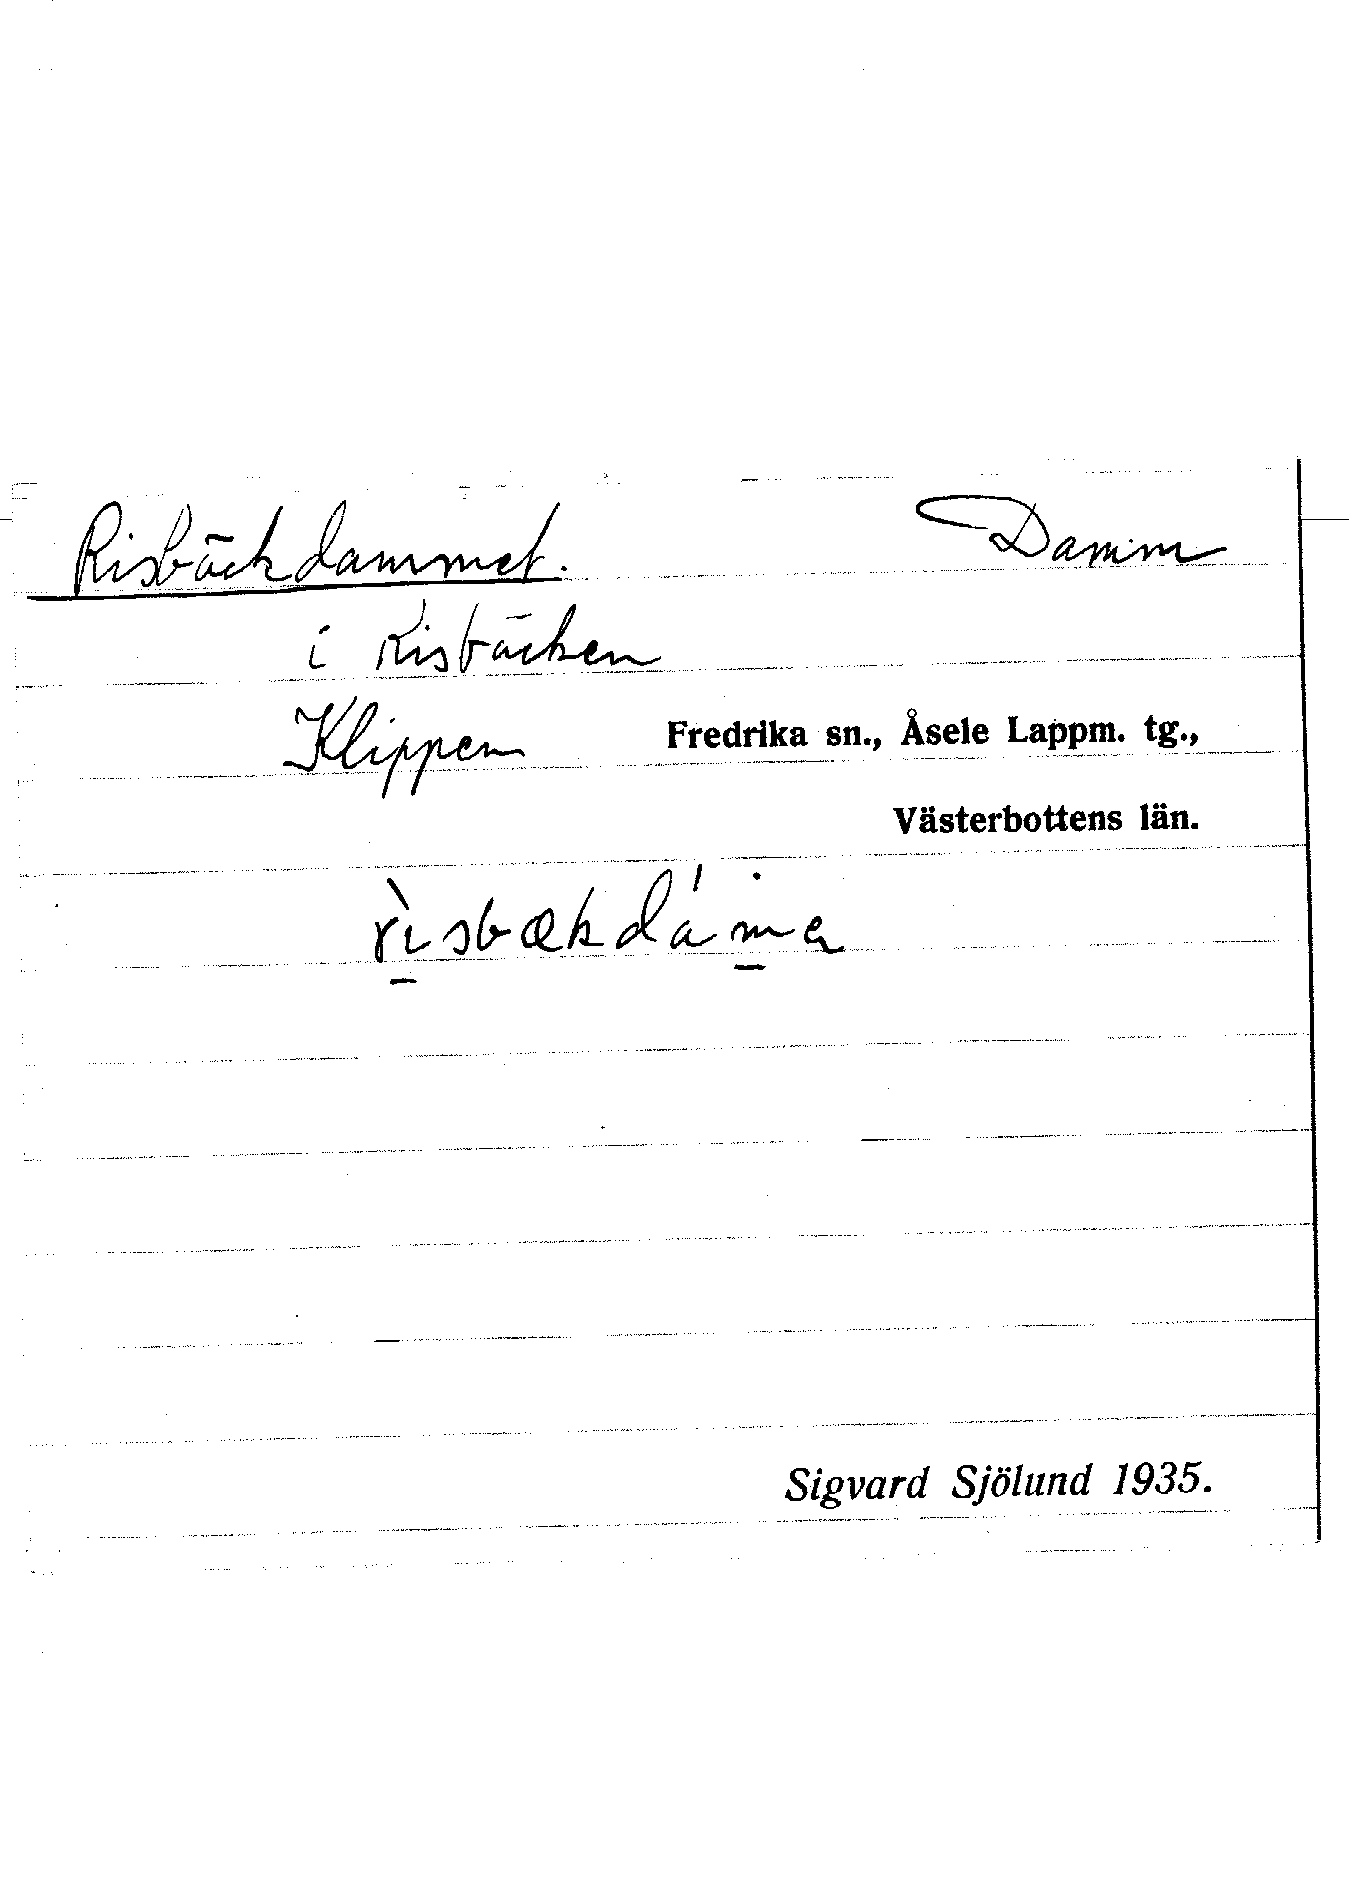 Risbäckdammet. Damm
i Risbäcken
Klippen Fredrika sn., Åsele Lappm. tg.,
Västerbottens län.
Sigvard Sjölund 1935.